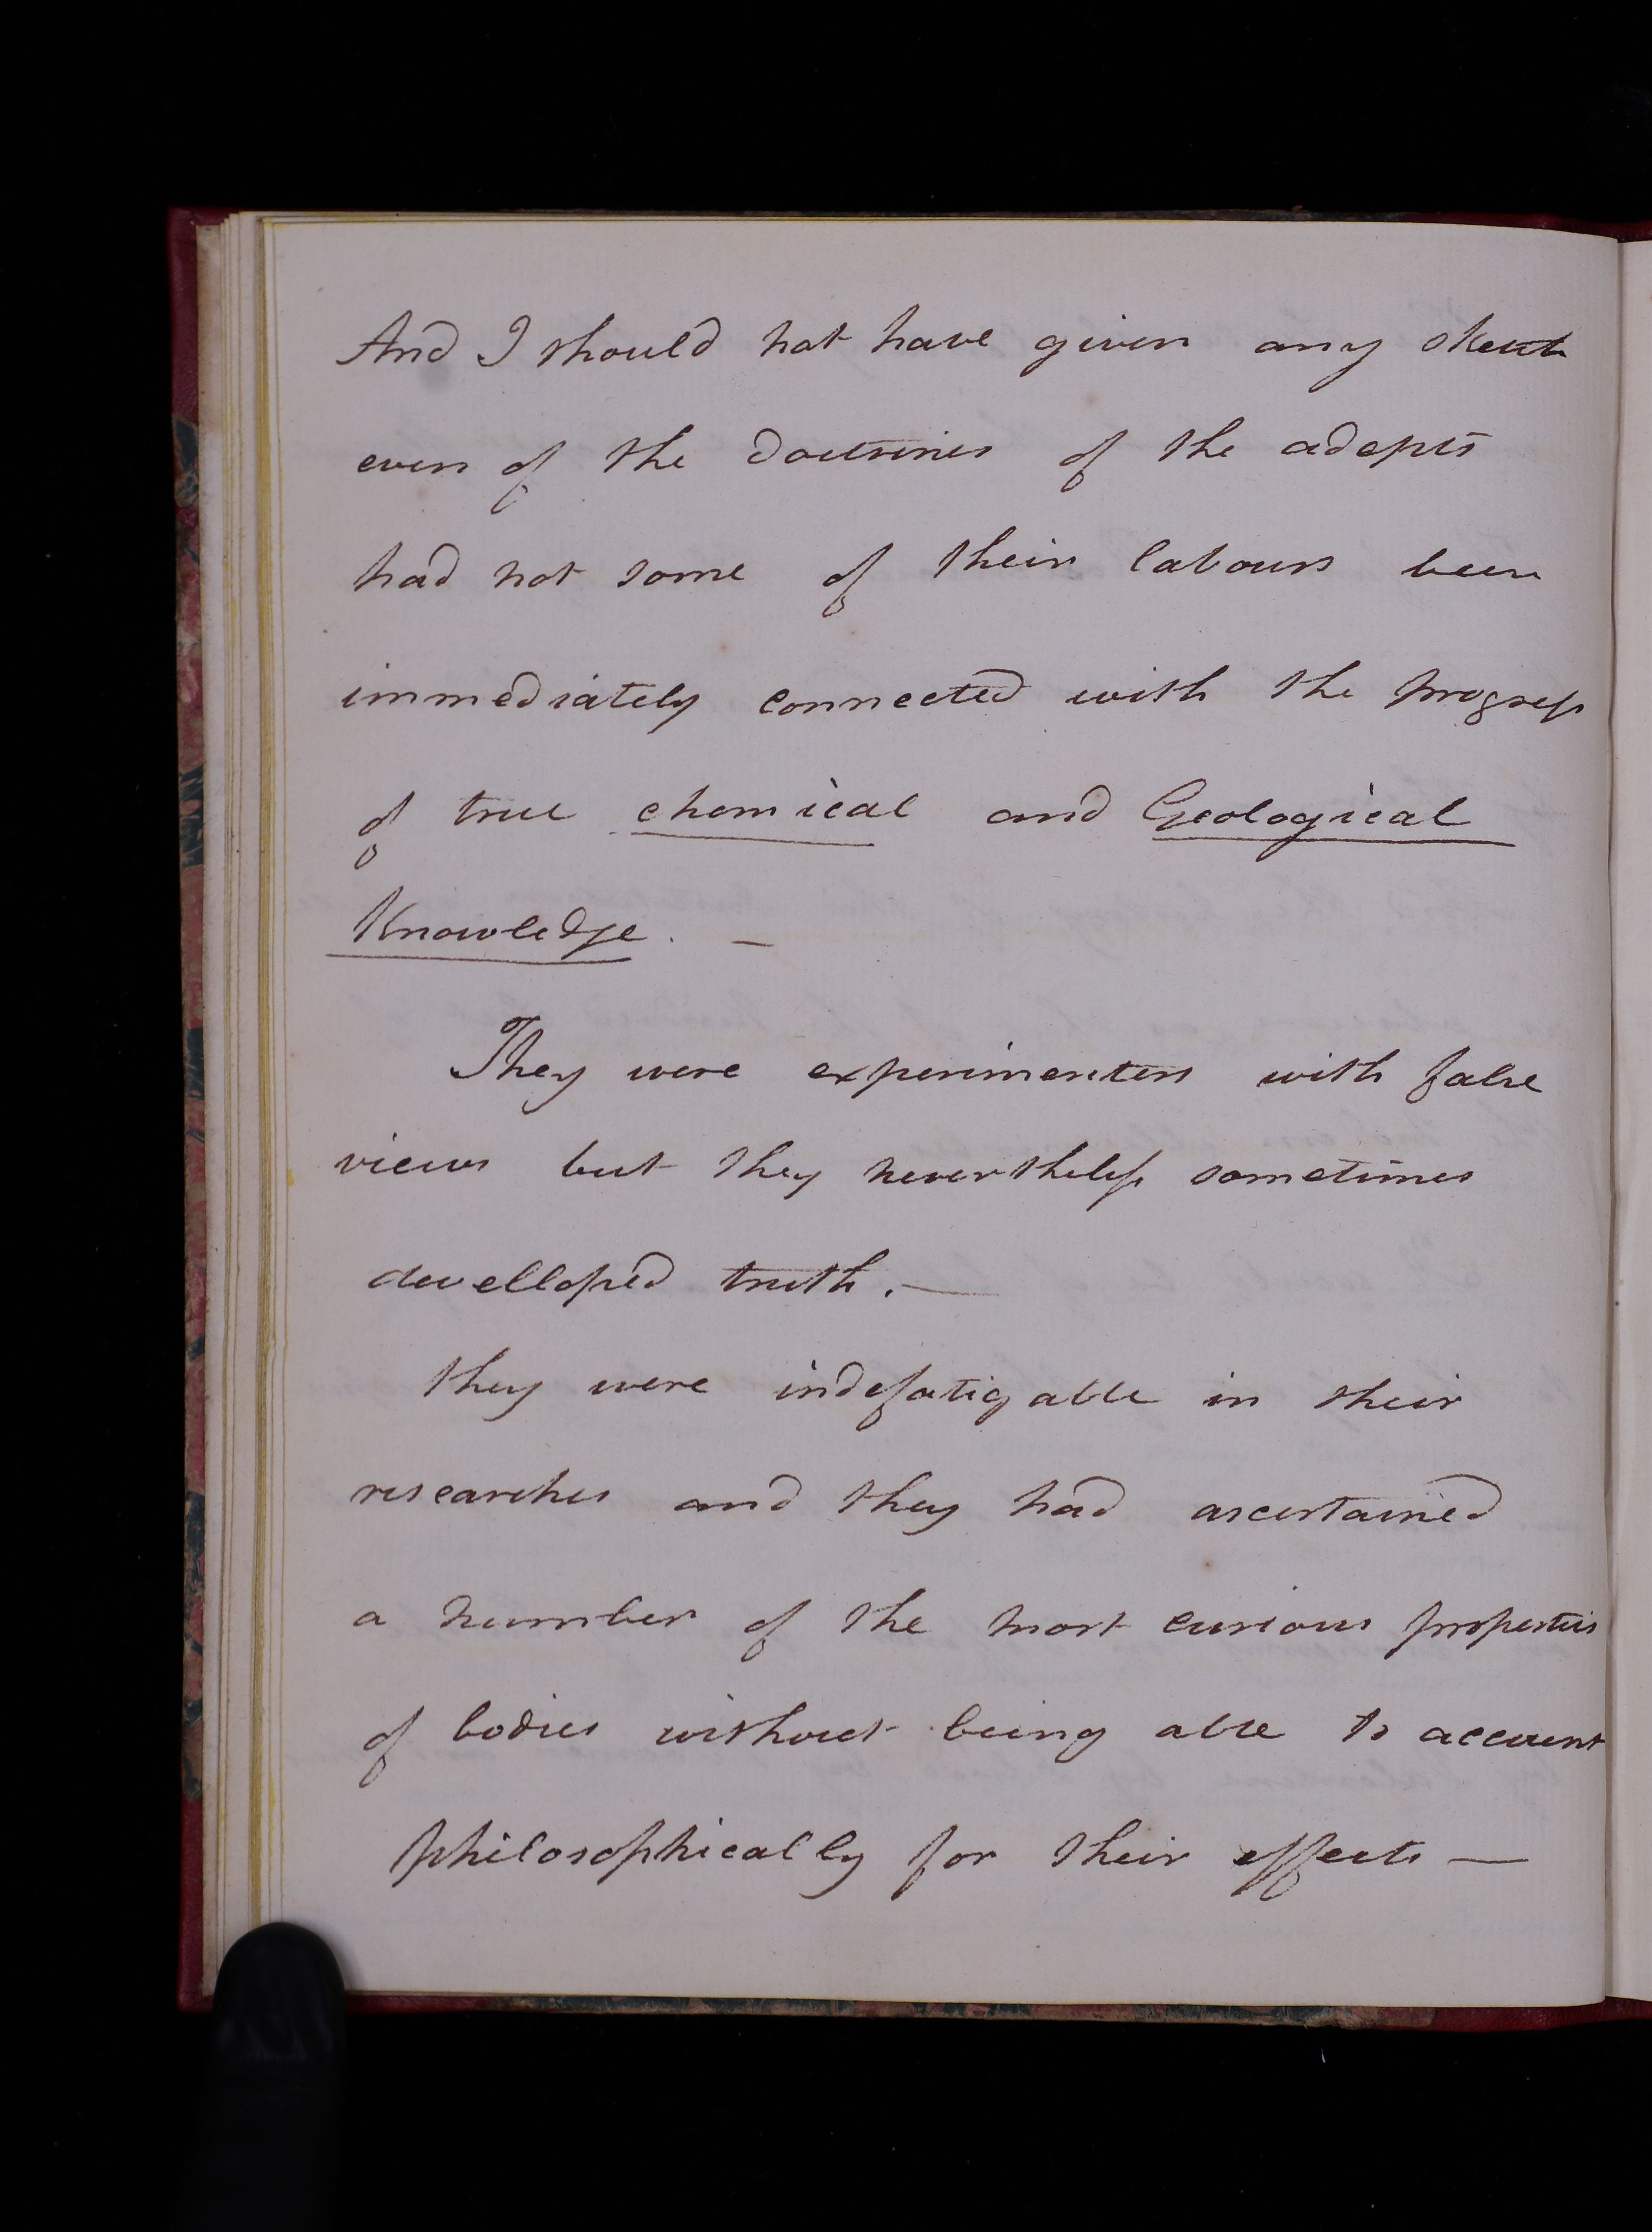 And I should not have given any sketch
even of the doctrines of the adepts
had not some of their labours been
immediately connected with the progress
of true chemical and Geological
Knowledge. —
They were experimenters with false
views but they nevertheless sometimes
develloped truth. —
they were indefatigable in their
researches and they had ascertained
a number of the most curious properties
of bodies without being able to account
philosophically for their effects —